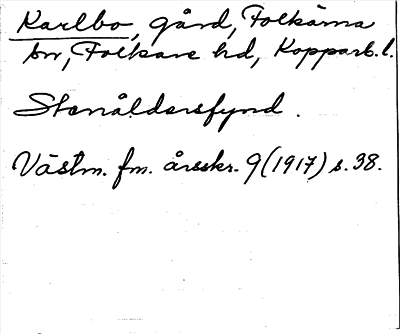 Karlbo, gård, Folkärna
sn, Folkare hd, Kopparb. l.
Stenåldersfynd.
Västm. fm. årsskr. 9 (1917) s. 38.